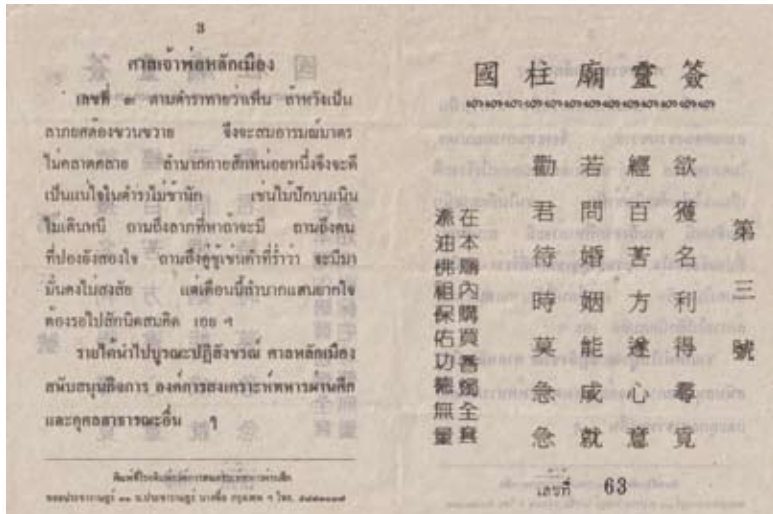 3
ศาลเจ้าพ่อหลักเมือง
เลขที่ ๓ ตามตำราทายว่าเห็น ถ้าหวังเป็น
ลาภยศต้องขวนขวาย จึงจะสมอารมณ์มาตร
ไม่คลาดคลาย ลำบากกายสักหน่อยหนึ่งจึงจะดี
เป็นแน่ใจในตำราไม่ช้านัก เช่นไม้ปักบนเนิน
ไม่เดินหนี ถามถึงลาภที่หาถ้าจะมี ถามถึงคน
ที่ปองยังสองใจ ถามถึงคู่ชู้เช่นเค้าที่ร่ำว่า จะมีมา
มั่นคงไม่สงสัย แต่เดือนนี้ลำบากแสนยากใจ
ต้องรอไปสักนิดสมคิด เอย ฯ
รายได้นำไปบูรณะปฏิสังขรณ์ ศาลหลักเมือง
สนับสนุนกิจการ องค์การสงเคราะห์ทหารผ่านศึก
และกุศลสาธารณะอื่น ๆ
พิมพ์ที่โรงพิมพ์องค์การสงเคราะห์ทหารผ่านศึก
國柱廟靈簽
第三號
欲獲名利得尋覓
經百苦方遂心意
若問婚姻能成就
勸君待時莫急念
在本廟內購買香燭全套
添油佛祖保佑功德無量
เลขที่ 63